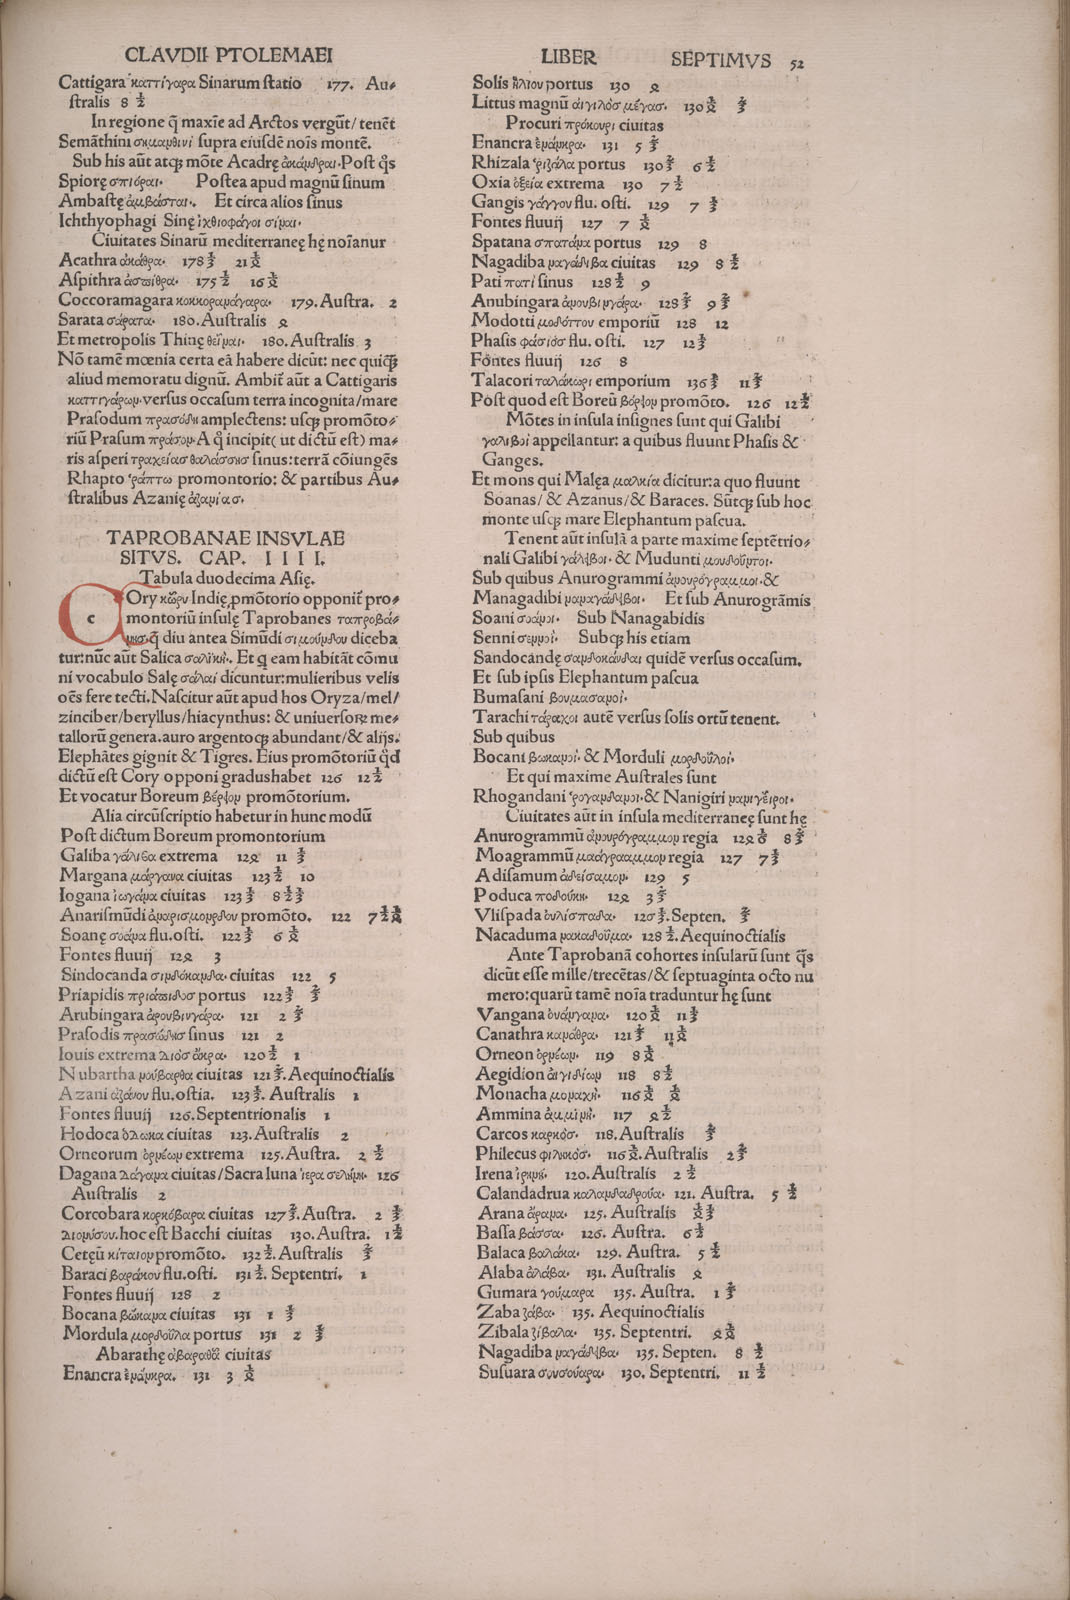 CLAVDII PTOLEMAEI
Cattigara καττίγαρα Sinarum ſtatio 177. Au⸗
ſtralis 8 ½
In regione q̃ maxĩe ad Arctos vergũt/ tenẽt
Semãthini σημανθινί ſupra eiuſdẽ noĩs montẽ.
Sub his aũt atqʒ mõte Acadrę ἀκάδραι. Poſt q̃s
Spiorę σπιόραι. Poſtea apud magnũ ſinum
Ambaſtę ἀμβάσται. Et circa alios ſinus
Ichthyophagi Sinę ἰχθιοφάγοι σίναι.
Ciuitates Sinarũ mediterraneę hę noĩanur
Acathra ἀκάθρα. 178 21
Aſpithra ἀσπίθρα. 175 ½ 16
Coccoramagara κοκκοραμάγαρα. 179. Auſtra. 2
Sarata σάρατα. 180. Auſtralis
Et metropolis Thinę θεῖναι. 180. Auſtralis 3
Nõ tamẽ mœnia certa eã habere dicũt: nec quicq̃
aliud memoratu dignũ. Ambit̃ aũt a Cattigaris
καττιγάρων. verſus occaſum terra incognita/ mare
Praſodum πρασώδη amplectens: uſqʒ promõto⸗
riũ Praſum πράσον. A q̃ incipit( ut dictũ eſt) ma⸗
ris aſperi τραχείασ θαλάσσησ ſinus: terrã cõiungẽs
Rhapto ῥάπτω promontorio: & partibus Au⸗
ſtralibus Azanię ἀζανίασ.
TAPROBANAE INSVLAE
SITVS. CAP. IIII.
Tabula duodecima Aſię.
c
Ory κῶρυ Indię ꝓmõtorio opponit̃ pro⸗
montoriũ inſulę Taprobanes ταπροβά⸗
νησ. q̃ diu antea Simũdi σιμούνδου diceba
tur: nũc aũt Salica σαλική. Et q̃ eam habitãt cõmu
ni vocabulo Salę σάλαι dicuntur: mulieribus velis
oẽs fere tecti. Naſcitur aũt apud hos Oryza/ mel/
zinciber/ beryllus/ hiacynthus: & uniuerſoꝝ me⸗
tallorũ genera. auro argentoqʒ abundant/ & alijs.
Elephãtes gignit & Tigres. Eius promõtoriũ q̃d
dictũ eſt Cory opponi gradus habet 126 12 ½
Et vocatur Boreum βόρειον promõtorium.
Alia circũſcriptio habetur in hunc modũ
Poſt dictum Boreum promontorium
Galiba γάλιβα extrema 11
Margana μάργανα ciuitas 123 ½ 10
Iogana ἰωγάνα ciuitas 123 8
Anariſmũdi ἀναρισμούνδου promõto. 122 7
Soanę σοάνα flu. oſti. 122 6
Fontes fluuij 3
Sindocanda σινδόκανδα. ciuitas 122 5
Priapidis πριάπιδοσ portus 122
Arubingara ἀρουβινγάρα. 121 2
Praſodis πρασώδησ ſinus 121 2
Iouis extrema διόσ ἄκρα. 120 ½ 1
Nubartha νούβαρθα ciuitas 121. Aequinoctialis
Azani ἀζάνου flu. oſtia. 123. Auſtralis 1
Fontes fluuij 126. Septentrionalis 1
Hodoca ὁδωκα ciuitas 123. Auſtralis 2
Orneorum ὀρνέων extrema 125. Auſtra. 2 ½
Dagana δάγανα ciuitas/ Sacra luna ἱερα σελήνη. 126
Auſtralis 2
Corcobara κορκόβαρα ciuitas 127. Auſtra. 2
διονύσου. hoc eſt Bacchi ciuitas 130. Auſtra. 1 ½
Cetęũ κίταιον promõto. 132 ½. Auſtralis
Baraci βαράκου flu. oſti. 131 ½. Septentri. 1
Fontes fluuij 128 2
Bocana βώκανα ciuitas 131 1
Mordula μορδοῦλα portus 131 2
Abarathę ἀβαραθα ciuitas
Enancra 131 3
LIBER SEPTIMVS 52
Solis ἡλίου portus 130
Littus magnũ αἰγιλόσ μέγασ. 130
Procuri πρόκουρι ciuitas
Enancra 131 5
Rhizala ῥιζάλα portus 130 6 ½
Oxia ὀξεία extrema 130 7 ½
Gangis γάγγου flu. oſti. 129 7
Fontes fluuij 127 7
Spatana σπατάνα portus 129 8
Nagadiba ναγάδιβα ciuitas 129 8 ½
Pati πατί ſinus 128 ½ 9
Anubingara ἀνουβινγάρα. 128 9
Modotti μοδόττου emporiũ 128 12
Phaſis φάσιοσ flu. oſti. 127 12
Fontes fluuij 126 8
Talacori ταλάκωρι emporium 136 11
Poſt quod eſt Boreũ βόρειον promõto. 126 12 ½
Mõtes in inſula inſignes ſunt qui Galibi
γαλιβοί appellantur: a quibus fluunt Phaſis &
Ganges.
Et mons qui Malęa μαλαία dicitur: a quo fluunt
Soanas/ & Azanus/ & Baraces. Sũtqʒ ſub hoc
monte uſqʒ mare Elephantum paſcua.
Tenent aũt inſulã a parte maxime ſeptẽtrio⸗
nali Galibi γάλιβοι. & Mudunti μουδοῦντοι.
Sub quibus Anurogrammi ἀνουρόγραμμοι. &
Managadibi ναναγάδιβοι. Et ſub Anurogrãmis
Soani σοάνοι. Sub Nanagabidis
Senni σεννοί. Subqʒ his etiam
Sandocandę σανδοκάνδαι quidẽ verſus occaſum.
Et ſub ipſis Elephantum paſcua
Bumaſani βουμασανοί.
Tarachi τάραχοι autẽ verſus ſolis ortũ tenent.
Sub quibus
Bocani βωκανοί. & Morduli μορδοῦλοι.
Et qui maxime Auſtrales ſunt
Rhogandani ῥογανδανοι. & Nanigiri νανιγεῖροι.
Ciuitates aũt in inſula mediterraneę ſunt hę
Anurogrammũ ἀνουρόγραμμον regia 8
Moagrammũ μαάγραμμον regia 127 7
Adiſamum ἀδείσαμον. 129 5
Poduca ποδούκη. 3
Vliſpada οὐλίσπαδα. Septen.
Nacaduma νακαδοῦμα. 128 ½. Aequinoctialis
Ante Taprobanã cohortes inſularũ ſunt q̃s
dicũt eſſe mille/ trecẽtas/ & ſeptuaginta octo nu
mero: quarũ tamẽ noĩa traduntur hę ſunt
Vangana οὐάνγανα. 120 11
Canathra κανάθρα. 121 11
Orneon ὀρνέων. 119 8
Aegidion αἰγιδίων 118 8 ½
Monacha μοναχή. 116
Ammina ἀμμινή. 117
Carcos καρκόσ. 118. Auſtralis
Philecus φιληκόσ. 116. Auſtralis 2
Irena ἰρηνή. 120. Auſtralis 2 ½
Calandadrua καλανδαδρούα. 121. Auſtra. 5 ½
Arana ἄρανα. 125. Auſtralis
Baſſa βάσσα. 126. Auſtra. 6 ½
Balaca βαλάκα. 129. Auſtra. 5 ½
Alaba ἀλάβα. 131. Auſtralis
Gumara γούμαρα 135. Auſtra. 1
Zaba ζάβα. 135. Aequinoctialis
Zibala ζίβαλα. 135. Septentri.
Nagadiba ναγάδιβα. 135. Septen. 8 ½
Suſuara σουσούαρα. 130. Septentri. 11 ½